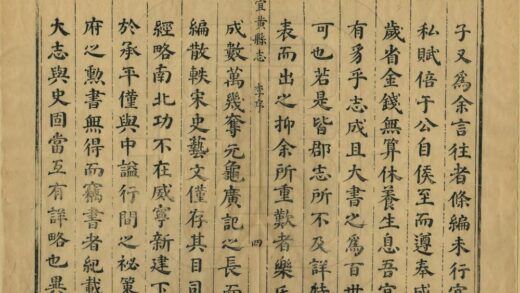 子又為余言往者條編未行官
私賦倍于公自侯至而遵奉成
歲省金錢無算休養生息吾宜
有豸乎志成且大書之為百世
可也若是皆郡志所不及詳特
表而出之抑余所重難者樂氏
宜黄縣志 李序 四
成數萬幾奪元龜廣記之長而
編散軼宋史藝文僅存其目司
經略南北功不在威寧新建下
於承平僅與中謚行間之祕策
府之勲書無得而竊書者紀載
大志與史固當互有詳略也異